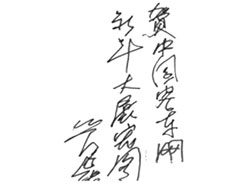 贺中国客车网
新年大展宏图